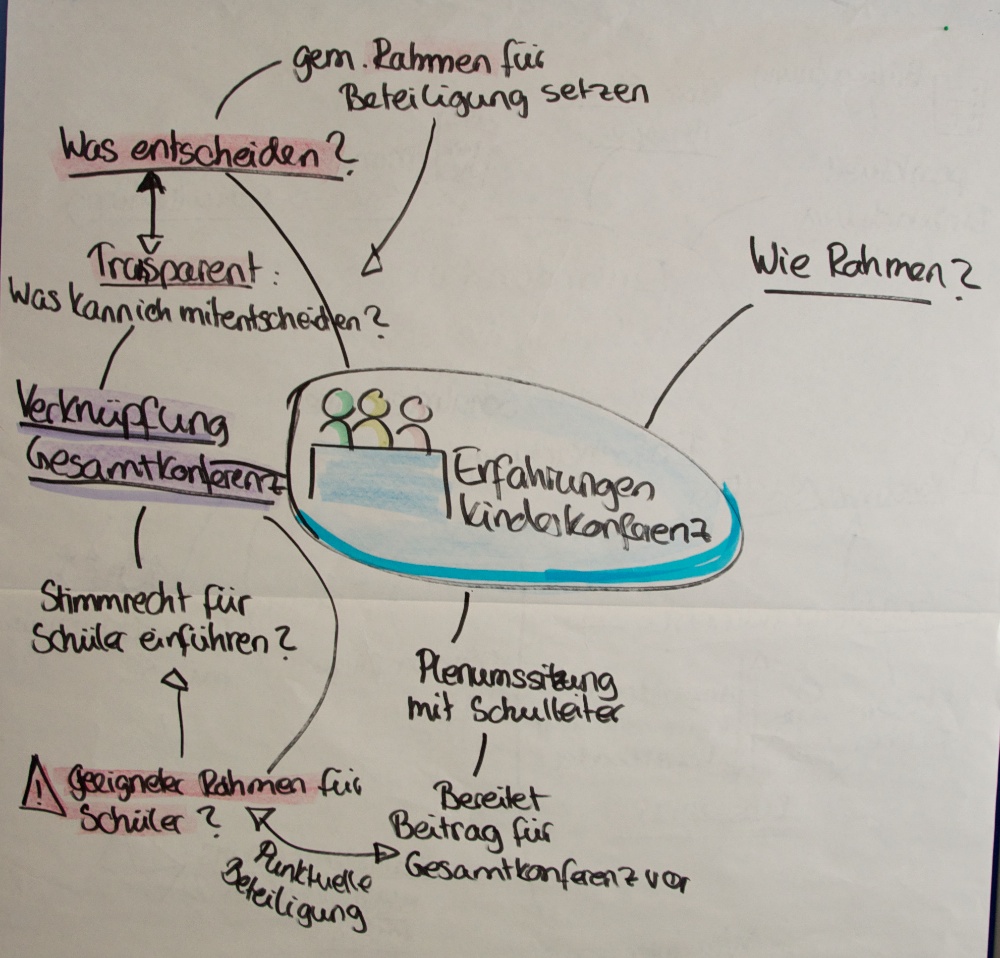 gem. Rahmen für
Beteiligung setzen
Was entscheiden?
Trasparent:
Was kann ich mitentscheiden?
Wie Rahmen?
Verknüpfung
Gesamtkonferenz
Erfahrungen
Kinderkonferenz
Stimmrecht für
Schüler einführen?
Plenumssitzung
mit Schulleiter
Geeigneter Rahmen für
Schüler?
Bereitet
Beitrag für
Gesamtkonferenz vor
Punktuelle
Beteiligung